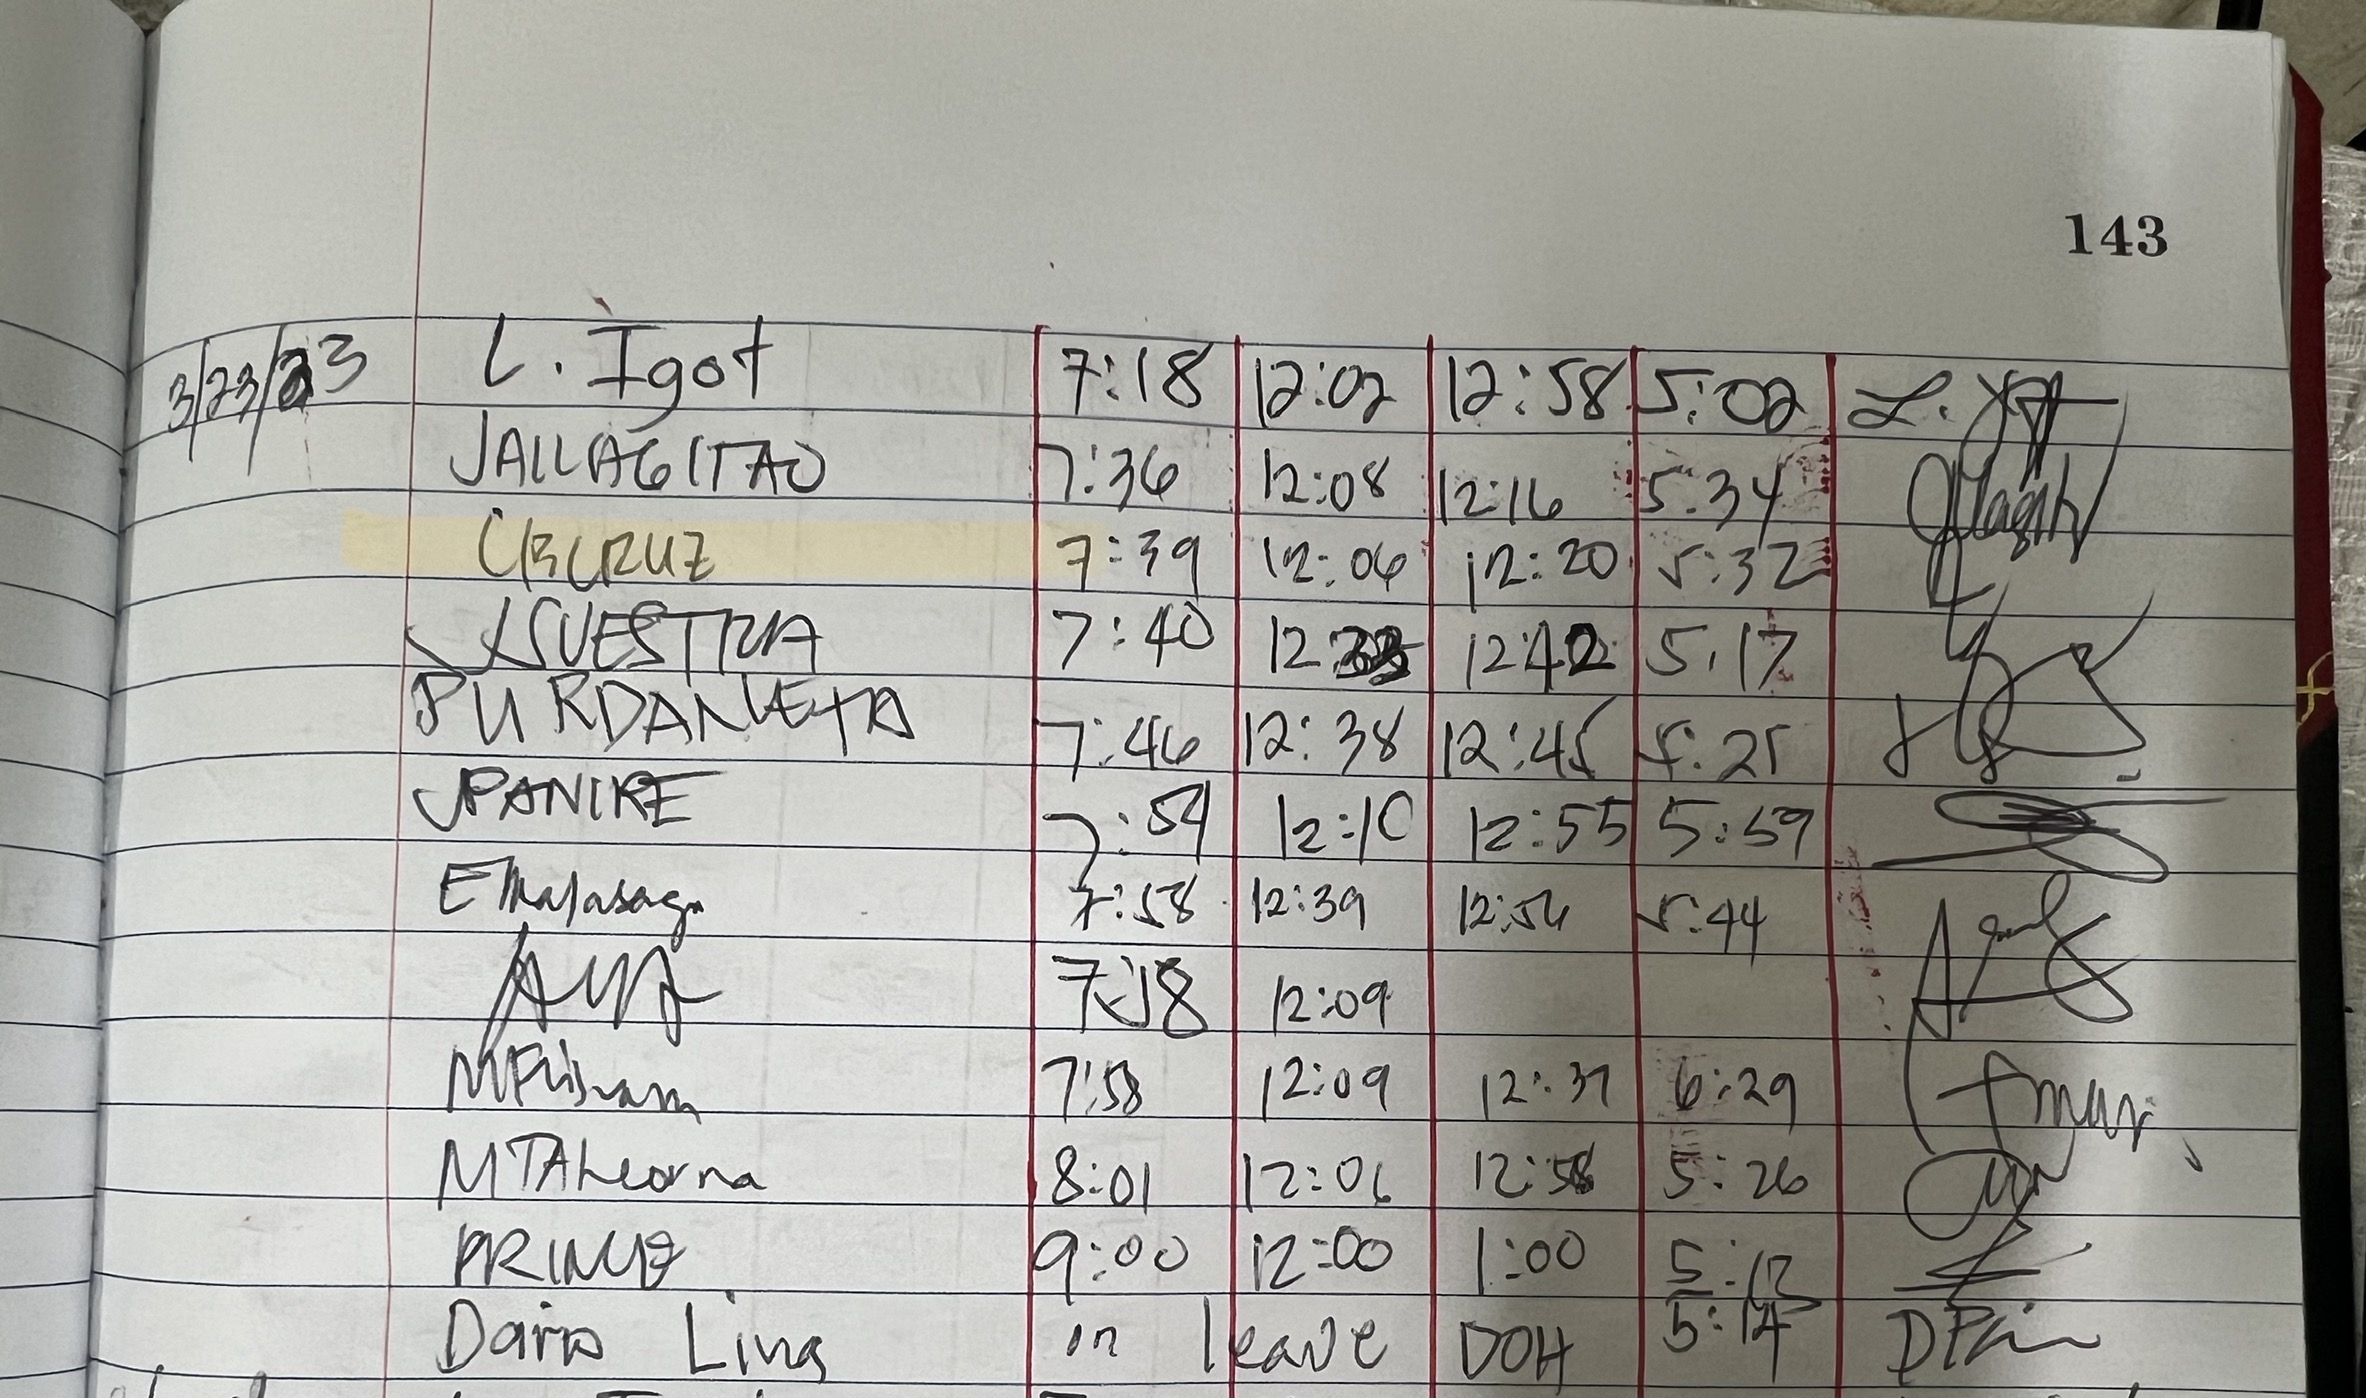 143
3/23/23 L. Igot 7:18 12:02 12:58 5:02 L. Igot
JAILLAGITAO 7:36 12:08 12:16 5:34
CBCRUZ 7:39 12:06 12:20 5:32
7:40 12:42 5:17
PURDANETA 7:46 12:38 12:45 5:25
JPANIKE 7:54 12:10 12:55 5:59
EMalasaga 7:58 12:39 12:54 5:44
AMA 7:18 12:09
7:58 12:09 12:37 6:29
MTALeorna 8:01 12:06 12:58 5:26
9:00 12:00 1:00 5:12
Dario Ling in leave DOH 5:14